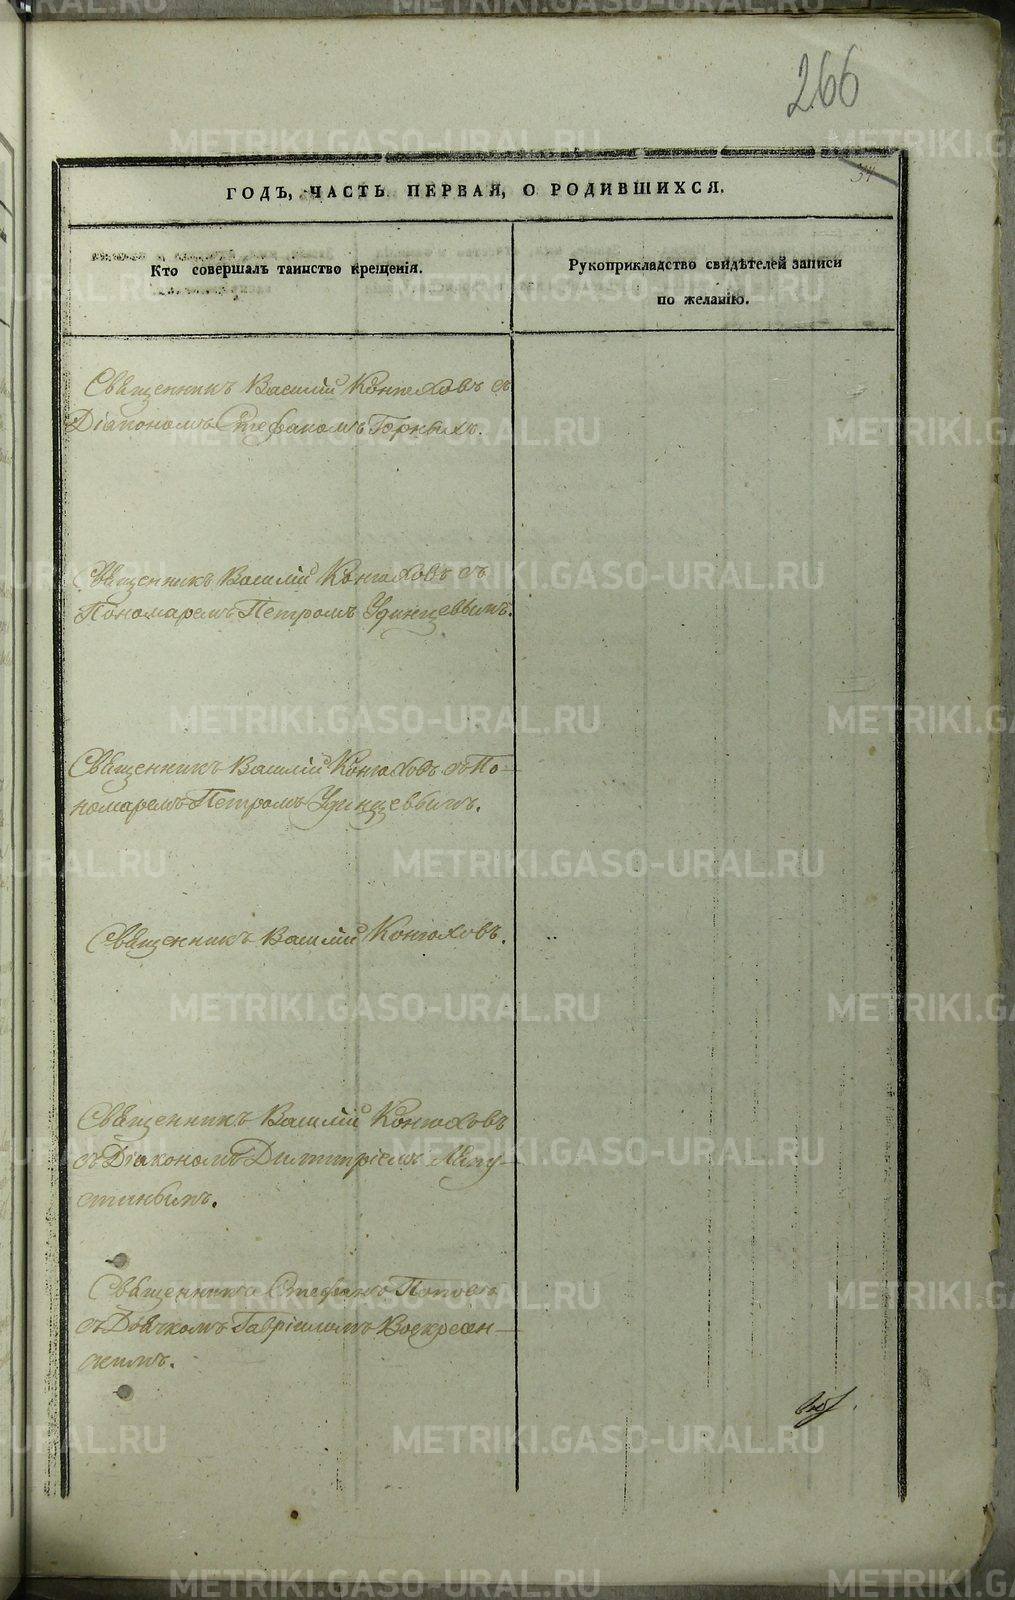 266
34
ГОДЪ, ЧАСТЬ ПЕРВАЯ, О РОДИВШИХСЯ.
Кто совершалъ таинство крещенія.
Рукоприкладство свидѣтелей записи
по желанію.
Священникъ Василій Конюховъ съ
Діакономъ Стефаномъ Горныхъ.
Священникъ Василій Конюховъ съ
Пономаремъ Петромъ Удинцевымъ.
Священникъ Василій Конюховъ съ По-
номаремъ Петромъ Удинцевымъ.
Священникъ Василій Конюховъ.
Священникъ Василій Конюховъ
съ Діакономъ Димитріемъ
Священникъ Стефанъ Поповъ
съ Дьячкомъ Гавріиломъ Воскресен-
скимъ.
METRIKI.GASO-URAL.RU